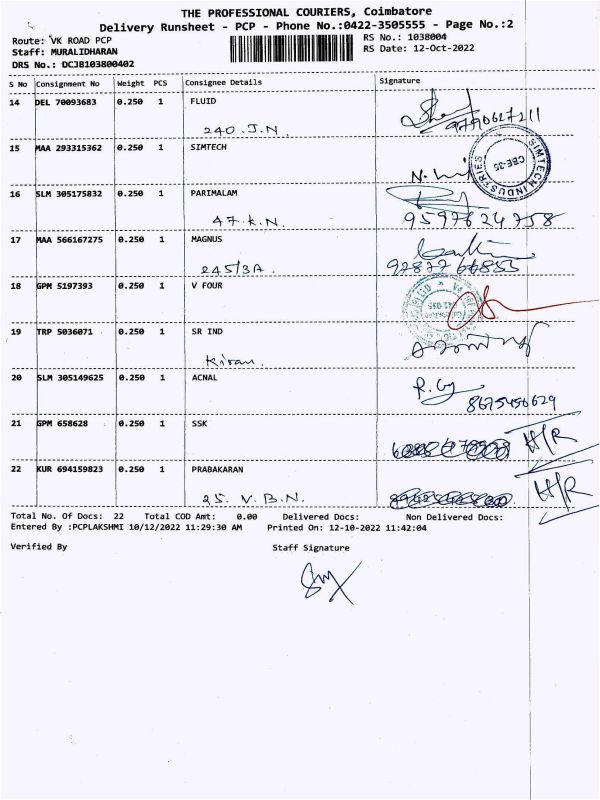 THE PROFESSIONAL COURIERS, Coimbatore
Delivery Runsheet - PCP - Phone No.:0422-3505555 - Page No.:2
Route: VK ROAD PCP
RS No.: 1038004
Staff: MURALIDHARAN
RS Date: 12-Oct-2022
DRS No.: DCJB103800402
S No Consignment No Weight PCS Consignee Details Signature
14 DEL 70093683 0.250 1 FLUID
240 J.N. 9790627211
15 MAA 293315362 0.250 1 SIMTECH
SIMTECH INDUSTRIES
CBE-35
16 SLM 305175832 0.250 1 PARIMALAM
47 K.N. 9597624758
17 MAA 566167275 0.250 1 MAGNUS
245/3A
18 GPM 5197393 0.250 1 V FOUR
19 TRP 5036071 0.250 1 SR IND
Kiran.
20 SLM 305149625 0.250 1 ACNAL
8675456629
21 GPM 658628 0.250 1 SSK
H/R
22 KUR 694159823 0.250 1 PRABAKARAN
25. V.B.N. H/R
Total No. Of Docs: 22 Total COD Amt: 0.00 Delivered Docs: Non Delivered Docs:
Entered By :PCPLAKSHMI 10/12/2022 11:29:30 AM Printed On: 12-10-2022 11:42:04
Verified By Staff Signature